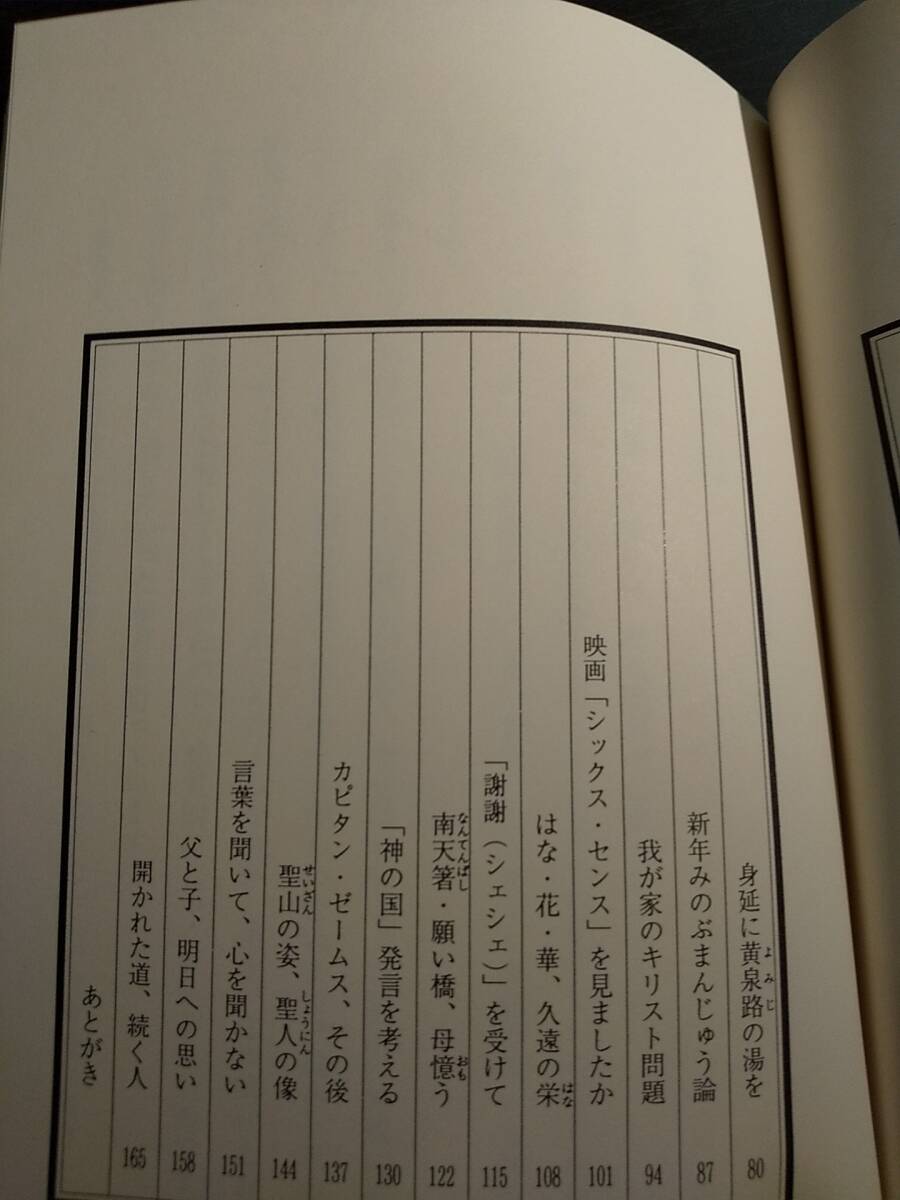 身延に黄泉路の湯を 80
新年みのぶまんじゅう論 87
我が家のキリスト問題 94
映画「シックス・センス」を見ましたか 101
はな・花・華、久遠の栄 108
「謝謝（シェシェ）」を受けて 115
南天箸・願い橋、母憶う 122
「神の国」発言を考える 130
カピタン・ゼームス、その後 137
聖山の姿、聖人の像 144
言葉を聞いて、心を聞かない 151
父と子、明日への思い 158
開かれた道、続く人 165
あとがき